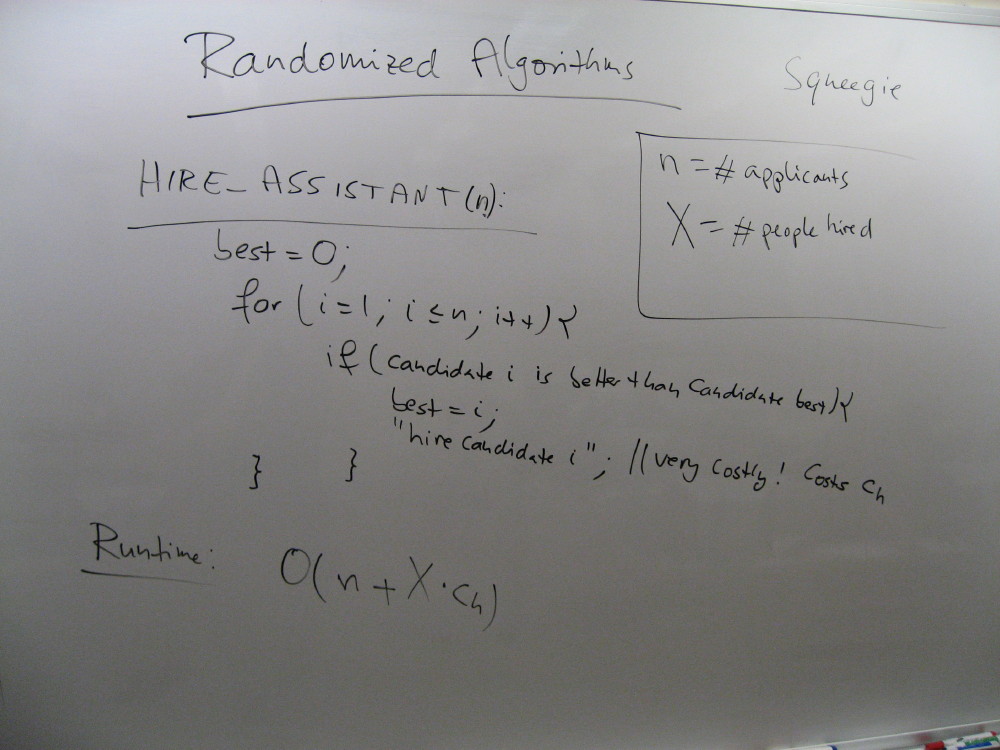 Randomized Algorithms
Squeegie
HIRE_ASSISTANT(n):
n = # applicants
X = # people hired
best = 0;
for (i=1; i≤n; i++){
if (candidate i is better than candidate best){
best = i;
"hire candidate i"; // very costly! Costs cₕ
} }
Runtime: O(n + X·cₕ)